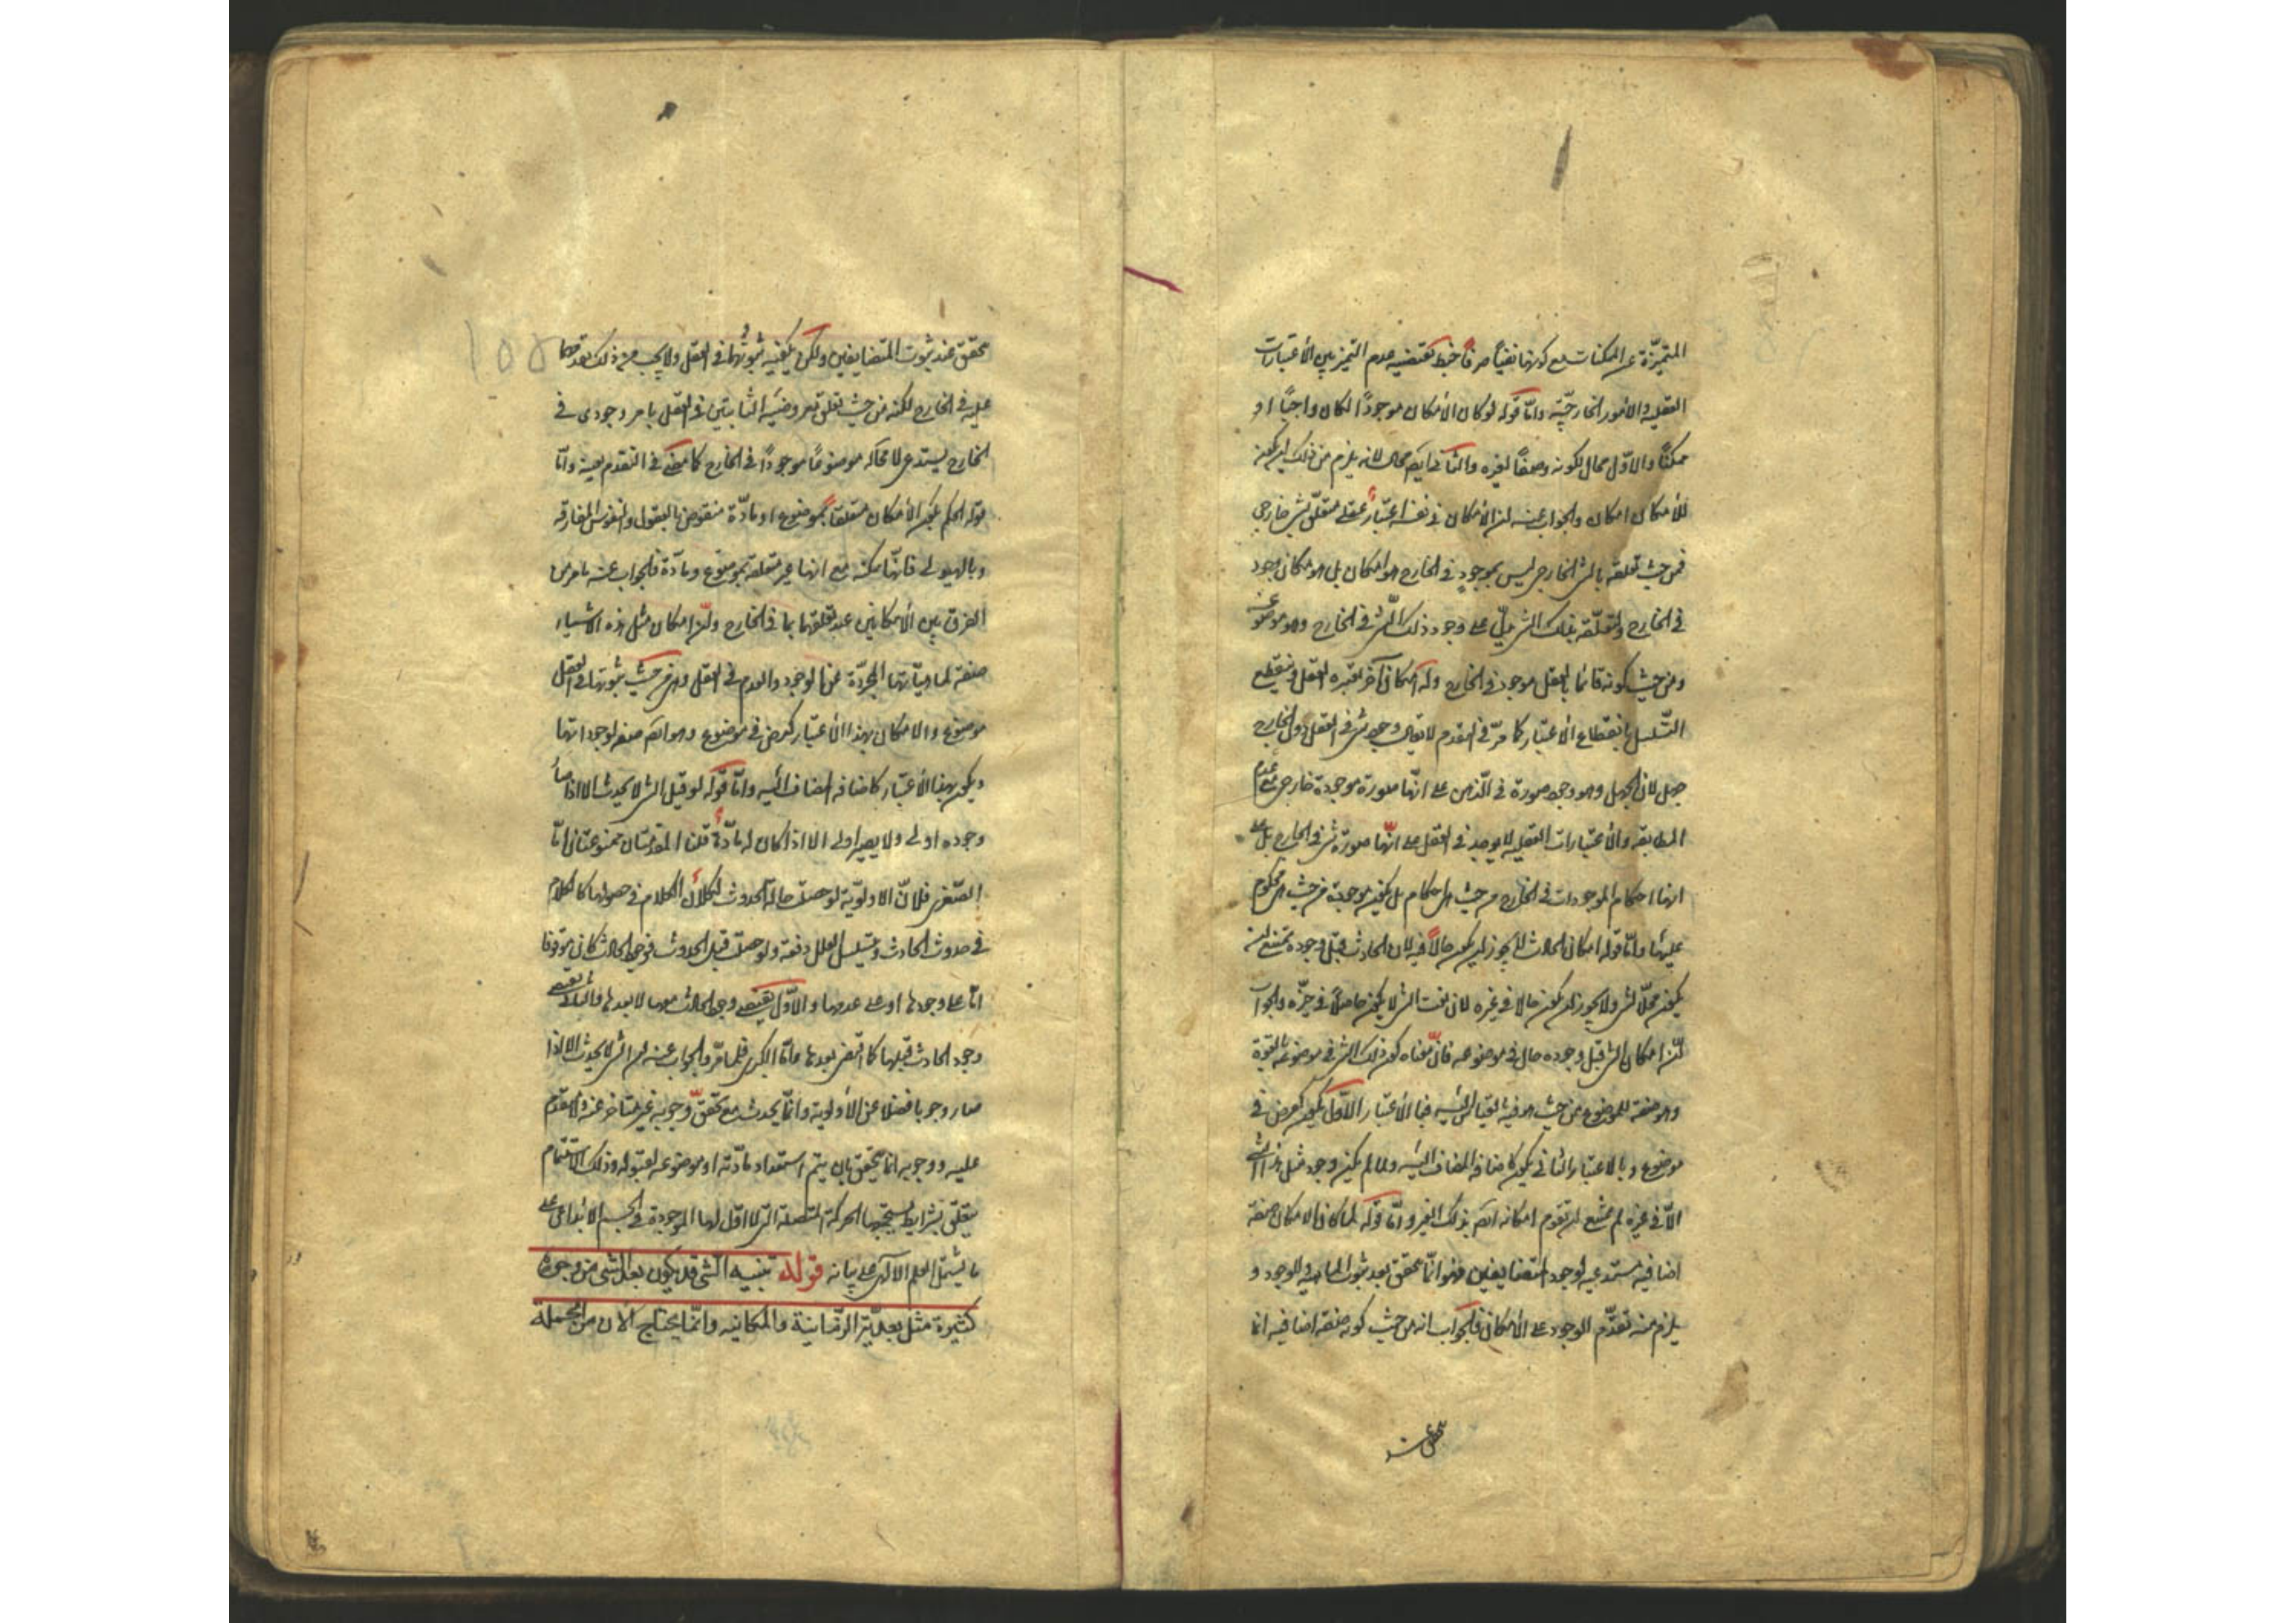 المتميّزة عن الممكنات مع كونها نفياً صرفاً خبط يقتضيه عدم التميز بين الأعتبارات
العقليه والامور الخارجيّة وامّا قوله لو كان الأمكان موجوداً لكان واجباً او
ممكناً والاوّل محال لكونه وصفاً لغيره والثانى ايضً محال لانه يلزم من ذلك ان يكون
للأمكان امكان والجواب عنه ان الأمكان فى نفسه اعتبارٌ عقلى متعلّق بشى خارجى
فمن حيث تعلقه بالشى الخارجى ليس بموجودٍ فى الخارج هو امكان بل هو امكان وجود
فى الخارج ولتعلّقه بذلك الشى يدلّ على وجود ذلك الشى فى الخارج وهو موضوعه
ومن حيث كونه قائما بالعقل موجود فى الخارج وله امكان آخر يعتبره العقل وينقطع
التّسلسل بانقطاع الأعتبار كما مرّ فى التقدم لا يقال وجود شى فى العقل دون الخارج
جهل لان الجهل وهو وجود صورة فى الذّهن على انّها صورة موجودة خارجى مع عدم
المطابقه والأعتبارات العقليه لا يوجد فى العقل على انّها صورة شى فى الخارج بل على
انها احكام الموجودات فى الخارج من حيث هى احكام بل يكون موجودة من حيث هى محكوم
عليها وامّا قوله امكان الحادث لا يجوز ان يكون حالاً فيه لان الحادث قبل وجوده يمتنع ان
يكون محلّا لشى ولا يجوز ان يكون حالا فى غيره لان نعت الشى لا يكون حاصلاً فى غيره والجواب
انّ امكان الشى قبل وجوده حال فى موضوعه فانّ معناه كون ذلك الشى فى موضوعه بالقوة
وهو صفة للموضوع من حيث هو فيه بالقياس اليه فبا الأعتبار الأوّل يكون كعرض فى
موضوع وبالاعتبار الثانى يكون كاضافه المضاف اليه ولما لم يكن وجود مثل هذا الشى
الّا فى غيره لم يمتنع ان يقوم امكانه ايضً بذلك الغير وامّا قوله لما كان الامكان صفة
اضافيه مستدعيه لوجود المتضايفين فهو انّما يتحقق بعد ثبوت الماهيه والوجود و
يلزم منه تقدّم الوجود على الأمكان فالجواب انه من حيث كونه صفة اضافيه انما
يتحقق عند ثبوت المتضايفين ولكن يكفيه ثبوتهما فى العقل ولا يجب من ذلك تقدّمهما
عليه فى الخارج لكنه من حيث تعلق معروضيه الثابتين فى العقل بامر وجودى فى
الخارج يستدعى لا محاله موضوعاً موجوداً فى الخارج كما مضى فى التقدم بعينه وامّا
قوله الحكم بكون الأمكان متعلقاً بموضوع او مادّة منقوض بالعقول والنفوس المفارقه
وبالهيولى فانّها ممكنه مع انها غير متعلقه بموضوع ومادّة فالجواب عنه ما مر من
الفرق بين الأمكانين عند تعلقهما بما فى الخارج وانّ امكان مثل هذه الاشياء
صفة لماهيّاتها المجرّدة عن الوجود والعدم فى العقل وهى من حيث ثبوتها فى العقل
موضوع والامكان بهذا الأعتبار كعرض فى موضوع وهو ايضً صفة لوجوداتها
ويكون بهذا الأعتبار كاضافه المضاف اليه وامّا قوله لو قيل الشى لا يحدث الا اذا صار
وجوده اولى ولا يصير اولى الا اذا كان له مادّة قلنا المقدمتان ممنوعتان امّا
الصّغرى فلانّ الاولويّة لو حصلت حالة الحدوث لكان الكلام فى حصولها كالكلام
فى حدوث الحادث ويتسلسل العلل دفعة ولو حصلت قبل الحدوث فوجود الحادث كان موقوفا
امّا على وجودها او على عدمها والأوّل يقتضى وجود الحادث معها لا بعدها والثانى يقتضى
وجود الحادث قبلها كما اقتضى بعدها وامّا الكبرى فلما مرّ والجواب عنه ان الشى لا يحدث الا اذا
صار وجوبا فضلا عن الأولوية وانّما يحدث مع تحقق وجوبه غير متاخر عنه ولا متقدم
عليه ووجوبه انما يتحقق بان يتم استعداد مادّته او موضوعه لقبوله وذلك الاستتمام
يتعلق بشرايط يستجمعها الحركة المتصلة التى لا اوّل لها الموجودة فى الجسم الأبداعى على
ما يشتمل العلم الالهى على بيانه قوله تنبيه الشى قد يكون بعد الشى من وجوه
كثيرة مثل بعديّة الزمانية والمكانيه وانّما يحتاج الآن من الجملة